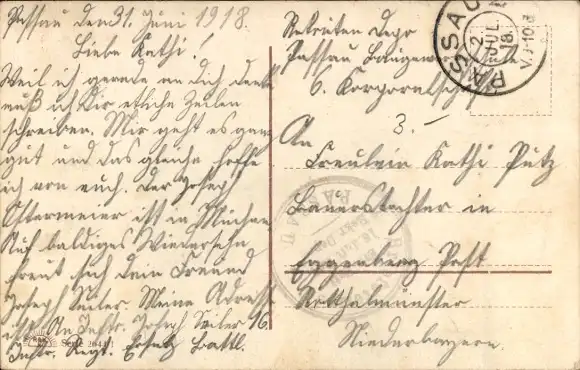 Passau den 31. Juni 1918.
Liebe Kathi!
Weil ich gerade an dich denke
muß ich Dir etliche Zeilen
schreiben. Mir geht es ganz
gut und das gleiche hoffe
ich von euch. Der Joseph
Ostermeier ist in München
Auf baldiges Wiedersehn
freut sich Dein Freund
Joseph Seiler Meine Adresse
ist An Inftr. Joseph Seiler 16.
Inftr. Regt. Ersatz Battl.
Serie 264/1
Rekruten Depo
Passau
6. Korporalschaft
3.-
An
Freulein Kathi Putz
Bauerstochter in
Eggenberg Post
Ortthalmünster
Niederbayern.
PASSAU
2 JUL. 18.
PASSAU